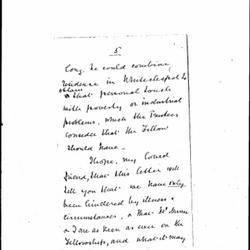 5
Cong. he could combine
residence in Whitechapel to
obtain
that personal touch
with poverty or industrial
problems, which the Trustees
consider that the Fellow
should have.
I hope, my
friend, that this letter will
tell you that we have only
been hindered by illness &
circumstances, & that
& I are as keen as ever on the
Fellowship, and what it may